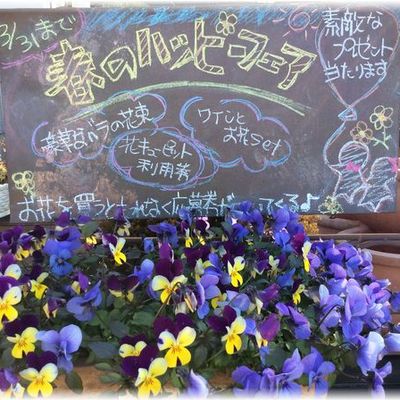 3/31まで
春のハッピーフェア
素敵な
プレゼント
当たります
豪華なバラの花束
ワインと
お花set
花キューピット
利用券
お花を買うともれなく応募券がついてくる♪